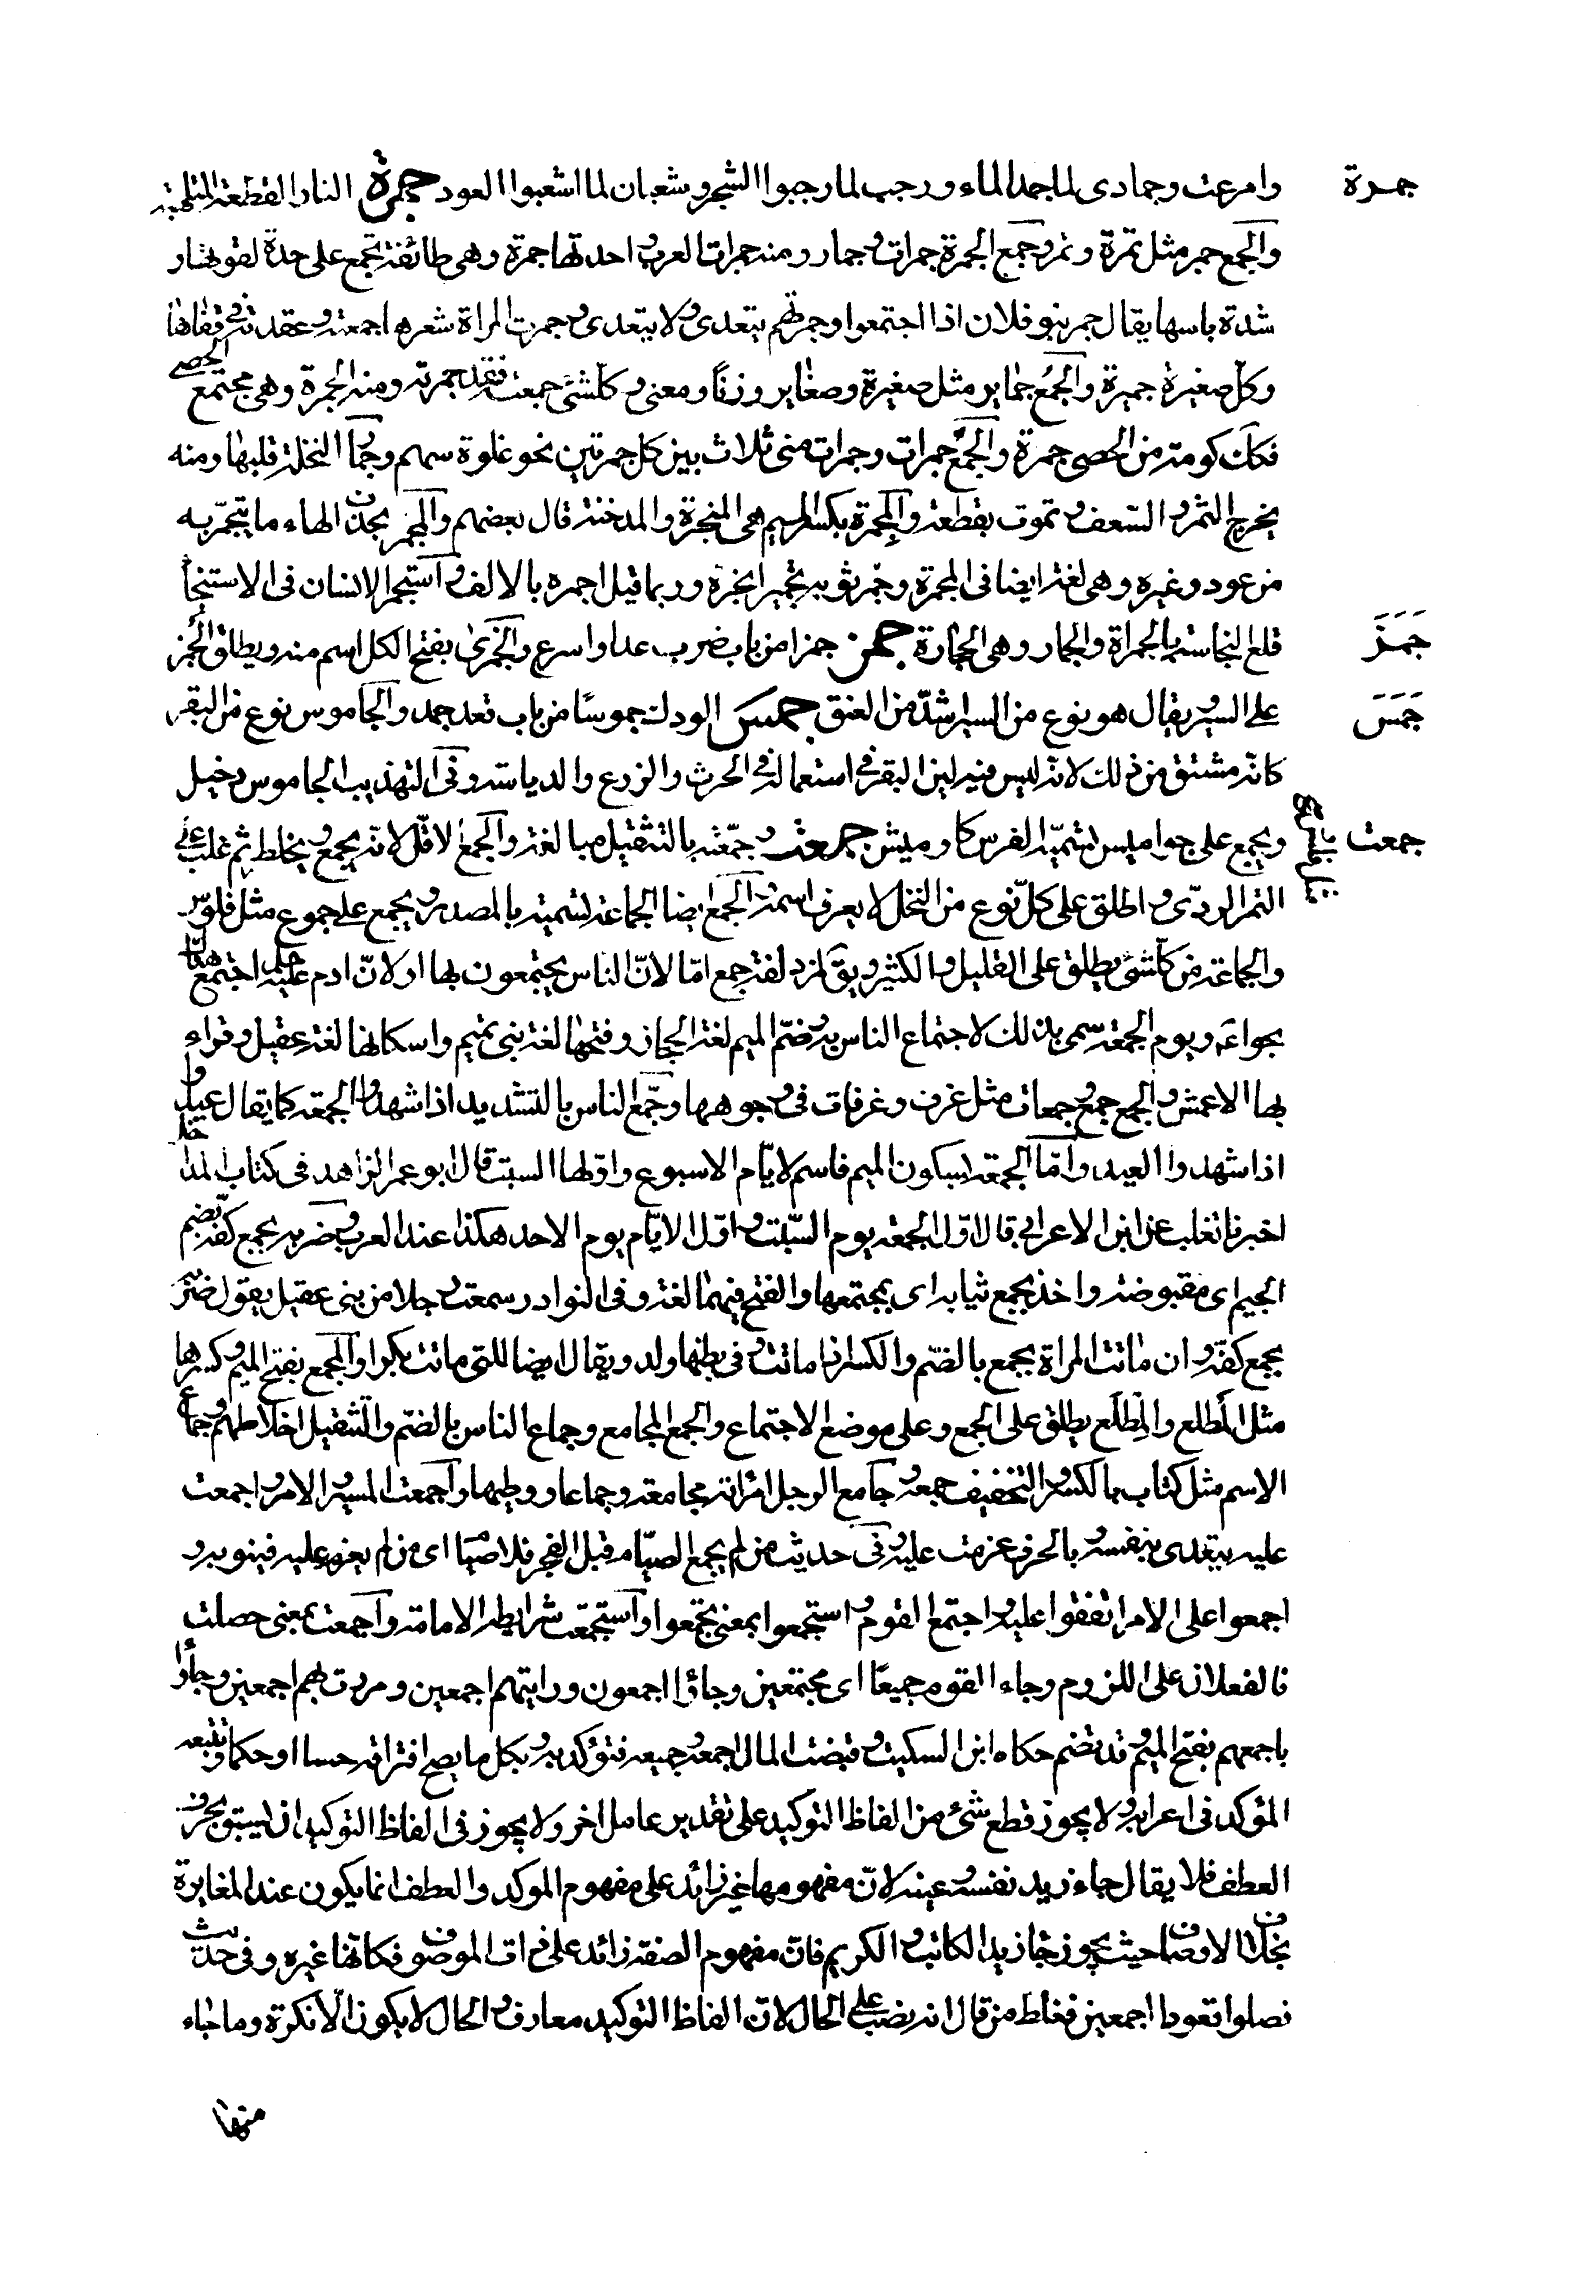 جمرة
وامرعت وجمادى لما جمد الماء ورجب لما رجبوا الشجر وشعبان لما اشعبوا العود جمرة النار القطعة الملتهبة
والجمع جمر مثل تمرة وتمر وجمع الجمرة جمرات وجمار ومنه جمرات العرب واحدتها جمرة وهى طائفة تجمع على حدة لقوتها و
شدة باسها يقال جمر بنو فلان اذا اجتمعوا وجمرتهم يتعدى ولا يتعدى وجمرت المراة شعرها جمعته وعقدته فى قفاها
وكل صغيرة جميرة والجمع جماير مثل صغيرة وصغاير وزنا ومعنى وكلشئ جمعته فقد جمرته ومنه الجمرة وهى مجتمع الحصى
فكل كومة من الحصى جمرة والجمع جمرات وجمرات منى ثلاث بين كل جمرتين نحو غلوة سهم وجمار النخلة قلبها ومنه
يخرج الثمر والسعف وتموت بقطعه والمجمرة بكسر الميم هى المبخرة والمدخنة قال بعضهم والمجمر بحذف الهاء ما يتجمر به
من عود وغيره وهى لغة ايضا فى المجمرة وجمر ثوبه تجميرا بخره وربما قيل اجمره بالالف واستجمر الانسان فى الاستنجاء
جمز
قلع النجاسة بالجمرات والجمار وهى الحجارة جمز جمزا من باب ضرب عدا واسرع والجمزى بفتح الكل اسم منه ويطلق الجمز
جمس
على السير ويقال هو نوع من السير اشد من العنق جمس الودك جموسا من باب قعد جمد والجاموس نوع من البقر
كانه مشتق من ذلك لانه ليس فيه لين البقر فى استعماله فى الحرث والزرع والدياسة وفى التهذيب الجاموس دخيل
جمعت
ويجمع على جواميس تسميه الفرس كاوميش جمعت وجمعته بالتثقيل مبالغة والجمع لاقل لانه يجمع ويخلط ثم غلب على
التمر الردى واطلق على كل نوع من النخل لا يعرف اسمه والجمع ايضا الجماعة تسمية بالمصدر ويجمع على جموع مثل فلوس
والجماعة من كلشئ يطلق على القليل والكثير ويق لمزدلفة جمع اما لان الناس يجتمعون بها او لان ادم عليه اجتمع هناك
بحواء ويوم الجمعة سمى بذلك لاجتماع الناس به وضم الميم لغة الحجاز وفتحها لغة بنى تميم واسكانها لغة عقيل وقراء
بها الاعمش والجمع جمع وجمعات مثل غرف وغرفات فى وجوهها وجمع الناس بالتشديد اذا شهدوا الجمعة كما يقال عيدوا
اذا شهدوا العيد واما الجمعة بسكون الميم فاسم لايام الاسبوع واولها السبت قال ابو عمر الزاهد فى كتاب المداخل
اخبرنا ثعلب عن ابن الاعرابى قال اول الجمعة يوم السبت واول الايام يوم الاحد هكذا عند العرب وضربه بجمع كفه بضم
الجيم اى مقبوضة واخذ بجمع ثيابه اى بمجتمعها والفتح فيهما لغة وفى النوادر سمعت رجلا من بنى عقيل يقول ضربه
بجمع كفه وان ماتت المراة بجمع بالضم والكسر اذا ماتت وفى بطنها ولد ويقال ايضا للتى ماتت بكرا والمجمع بفتح الميم وكسرها
مثل المطلع والمطلع يطلق على الجمع وعلى موضع الاجتماع والجمع المجامع وجماع الناس بالضم والتثقيل اخلاطهم وجماع
الاسم مثل كتاب بالكسر والتخفيف جمعه وجامع الرجل امراته مجامعة وجماعا ووطيها واجمعت المسير والامر واجمعت
عليه يتعدى بنفسه وبالحرف عزمت عليه وفى حديث من لم يجمع الصيام قبل الفجر فلا صيام اى من لم يعزم عليه فينويه و
اجمعوا على الامر اتفقوا عليه واجتمع القوم واستجمعوا بمعنى تجمعوا واستجمعت شرايط الامامة واجتمعت بمعنى حصلت
فالفعلان على اللزوم وجاء القوم جميعا اى مجتمعين وجاؤا اجمعون ورايتهم اجمعين ومررت بهم اجمعين وجاؤا
باجمعهم بفتح الميم وقد تضم حكاه ابن السكيت وقبضت المال اجمعه وجميعه فتؤكد به وبكل ما يصح افتراقه حسا او حكما وتتبعه
المؤكد فى اعرابه ولا يجوز قطع شئ من الفاظ التوكيد على تقدير عامل اخر ولا يجوز فى الفاظ التوكيد ان يسبق بحرف
العطف فلا يقال جاء زيد نفسه وعينه لان مفهومها غير زائد على مفهوم الموكد والعطف انما يكون عند المغايرة
بخلاف الاوصاف حيث يجوز جاء زيد الكاتب والكريم فان مفهوم الصفة زائد على ذات الموصوف فكانها غيره وفى حديث
فصلوا قعودا اجمعين فغلط من قال انه نصب على الحال لان الفاظ التوكيد معارف والحال لا يكون الا نكرة وما جاء
منها